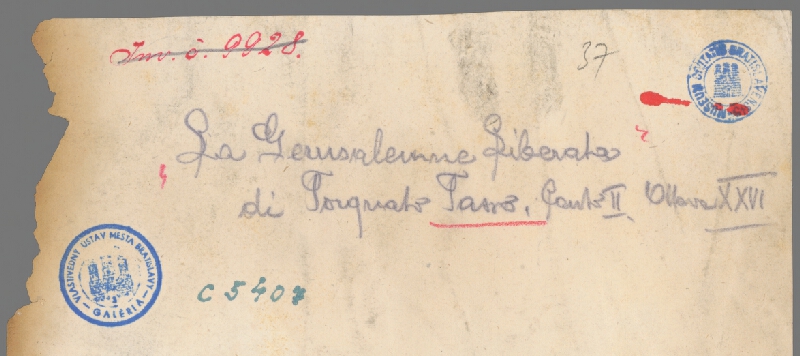 Inv. č. 9928.
37
MUSEUM CIVITATIS BRATISLAVENSIS
"La Gerusalemme Liberata"
di Torquato Tasso, Canto II, Ottava XXVI
VLASTIVEDNÝ ÚSTAV MESTA BRATISLAVY
— GALÉRIA —
C 5407